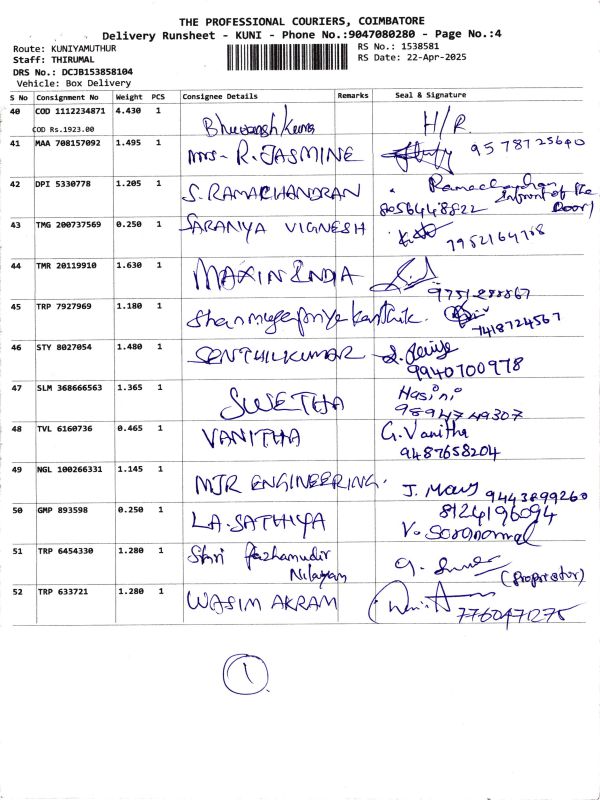 THE PROFESSIONAL COURIERS, COIMBATORE
Delivery Runsheet - KUNI - Phone No.:9047080280 - Page No.:4
Route: KUNIYAMUTHUR RS No.: 1538581
Staff: THIRUMAL RS Date: 22-Apr-2025
DRS No.: DCJB153858104
Vehicle: Box Delivery
S No Consignment No Weight PCS Consignee Details Remarks Seal & Signature
40 COD 1112234871 4.430 1 H/R
COD Rs.1923.00
41 MAA 708157092 1.495 1 mrs- R. JASMINE
42 DPI 5330778 1.205 1 S. RAMACHANDRAN Ramachandran Infront of the Door)
8056448822
43 TMG 200737569 0.250 1 SARANYA VIGNESH
44 TMR 20119910 1.630 1 MAXIN INDIA
45 TRP 7927969 1.180 1 Shanmugapriya Karthik. 7418724567
46 STY 8027054 1.480 1 SENTHILKUMAR
9940700978
47 SLM 368666563 1.365 1 SWETHA Hasini
9894749307
48 TVL 6160736 0.465 1 VANITHA G. Vanitha
9487658204
49 NGL 100266331 1.145 1 MJR ENGINEERING. 9443899260
50 GMP 893598 0.250 1 LA. SATHIYA 8124196094
51 TRP 6454330 1.280 1 Shri Pazhamudir
Nilayam (Proprietor)
52 TRP 633721 1.280 1 WASIM AKRAM 7760471275
1